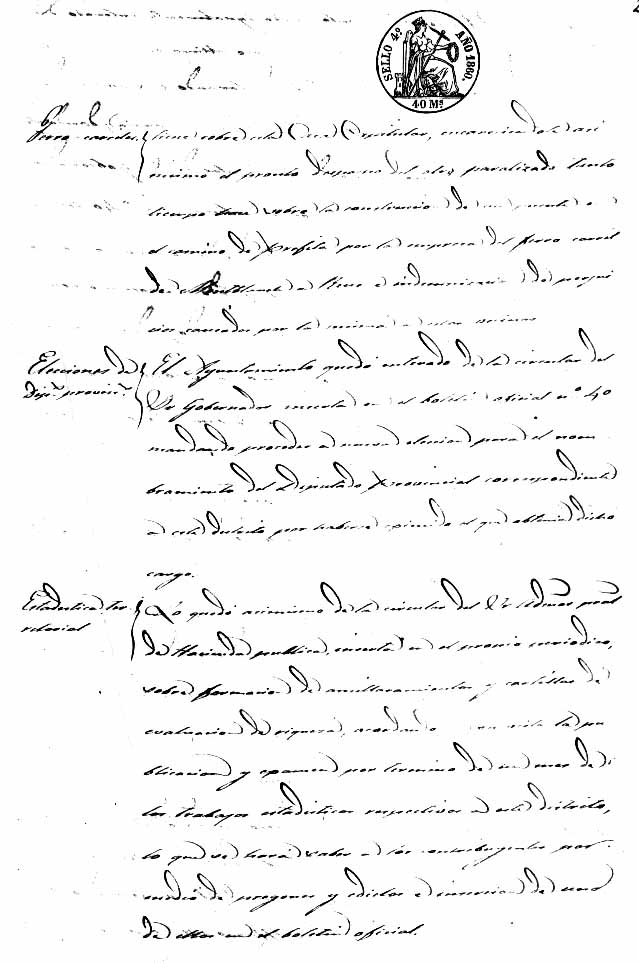 SELLO 4º AÑO 1860.
40 Ms
Ferro carriles
tiene sobre esta Casa Capitular, encareciendole asi
mismo el pronto despacho del otro paralizado tanto
tiempo sobre la construccion de un puente
el camino de por la empresa del ferro carril
de Montblanch a Reus e indemnizacion de perjui
cios causados por la misma a
Elecciones de
Dipº provinº
El Ayuntamiento quedó enterado de la circular del
Sr Gobernador inserta en el boletin oficial nº 40
mandando proceder a nueva eleccion para el nom
bramiento del Diputado provincial correspondiente
a este distrito por haberse el que obtenia dicho
cargo.
Estadistica ter
ritorial
Lo quedó asimismo de la circular del Sr Admor pral
de Hacienda publica, inserta en el propio periodico,
sobre formacion de amillaramientos y cartillas de
evaluacion de riqueza, acordando la pu
blicacion y examen por termino de un mes de
los trabajos estadisticos respectivos a este distrito,
lo que se hará saber a los contribuyentes por
medio de pregones y edictos e insercion de uno
de ellos en el boletin oficial.